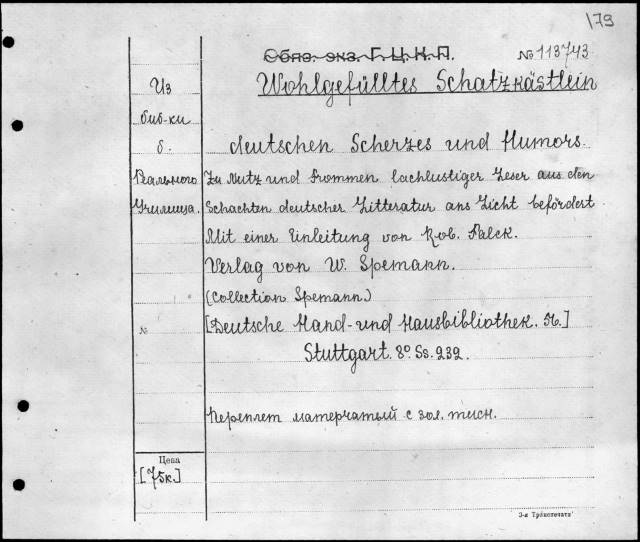 179
Обяз. экз. Г.Ц.К.П. № 113743
Wohlgefülltes Schatzkästlein
deutschen Scherzes und Humors.
Zu Nutz und Frommen lachlustiger Leser aus den
Schachten deutscher Litteratur ans Licht befördert
Mit einer Einleitung von Rob. Falck.
Verlag von W. Spemann.
(Collection Spemann)
[Deutsche Hand- und Hausbibliothek.
Stuttgart. 8° Ss. 232.
Переплет матерчатый с зол. тисн.
Из
биб-ки
б.
Реального
Училища.
№
Цена
[75к.]
3-я Транспечать